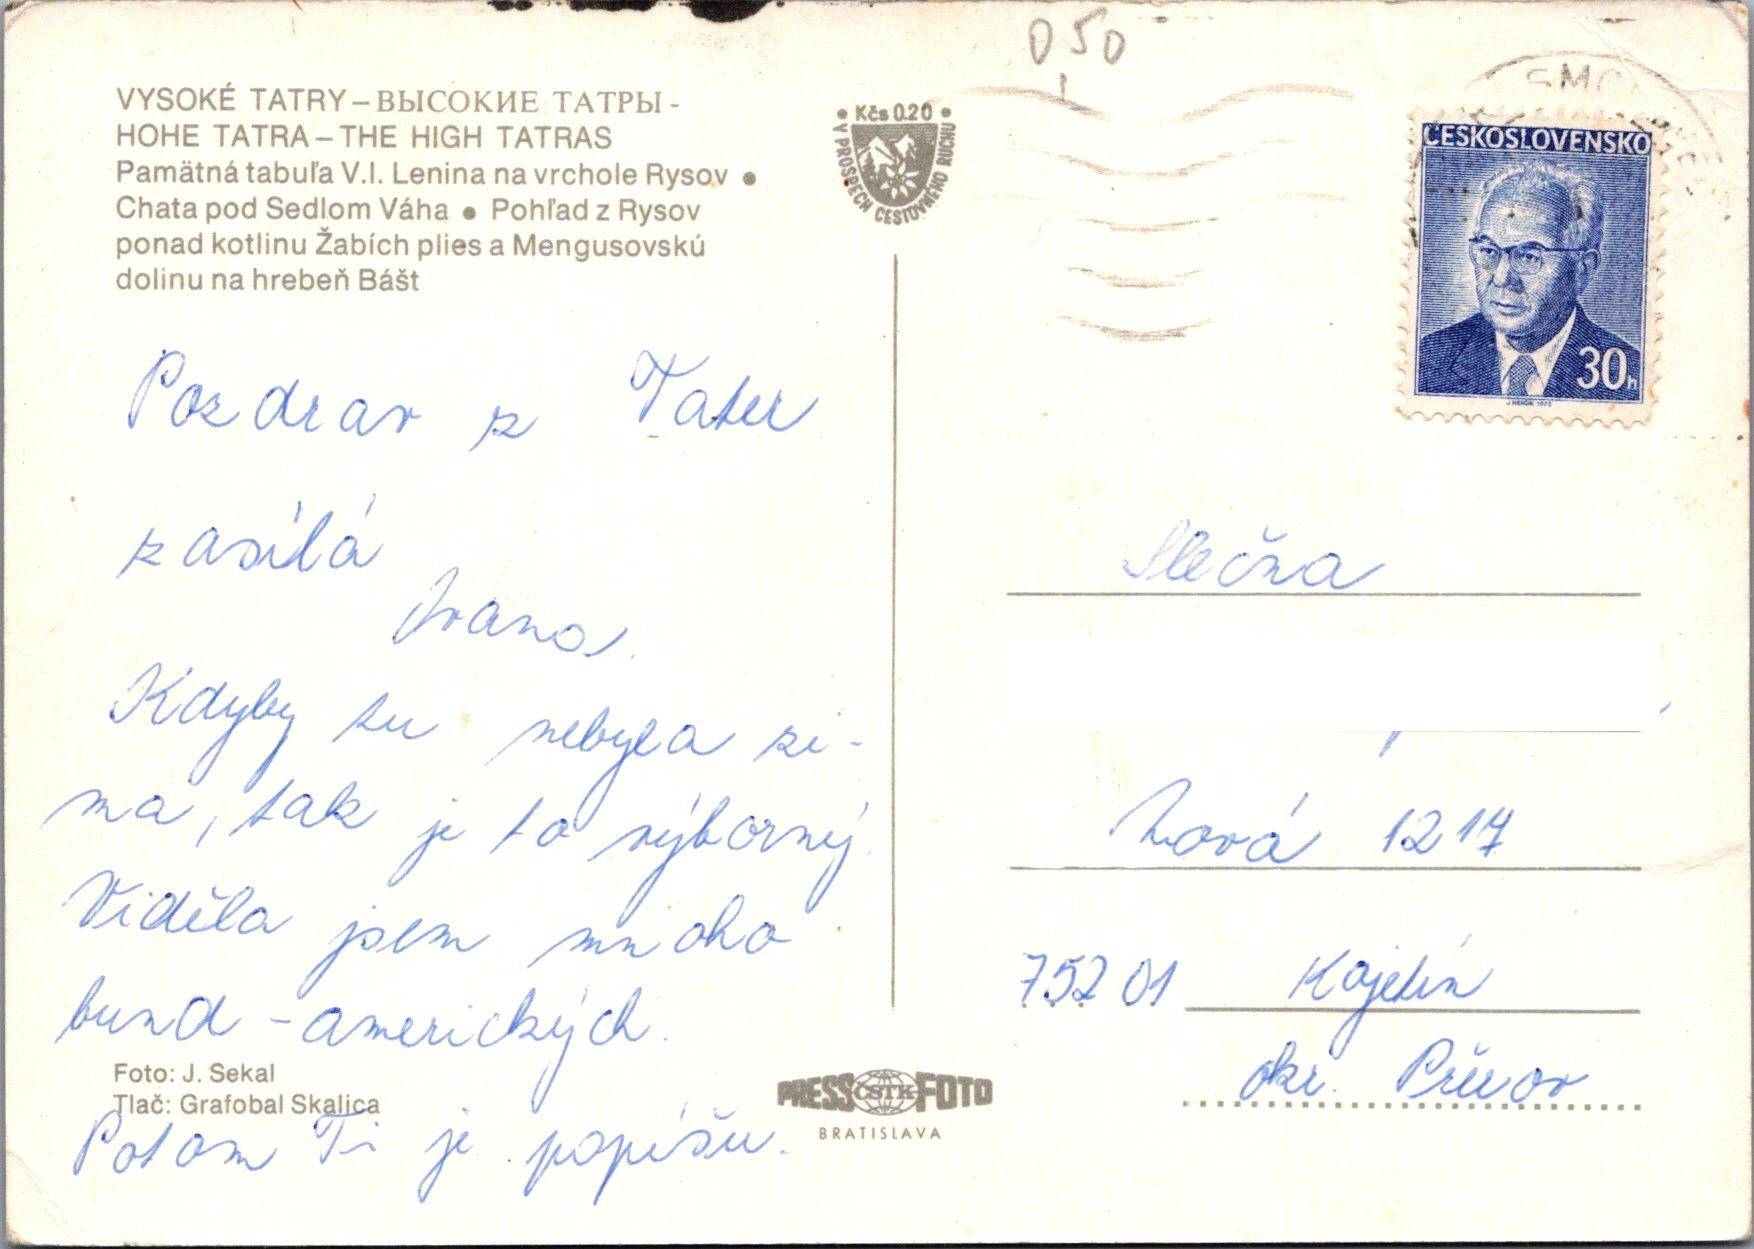 VYSOKÉ TATRY – ВЫСОКИЕ ТАТРЫ -
HOHE TATRA – THE HIGH TATRAS
Pamätná tabuľa V.I. Lenina na vrchole Rysov •
Chata pod Sedlom Váha • Pohľad z Rysov
ponad kotlinu Žabích plies a Mengusovskú
dolinu na hrebeň Bášt
Pozdrav z Tater
zasílá
Ivana.
Kdyby tu nebyla zi-
ma, tak je to výborný.
Viděla jsem mnoho
bund - amerických.
Potom Ti je popíšu.
Foto: J. Sekal
Tlač: Grafobal Skalica
• Kčs 0.20 •
V PROSPECH CESTOVNÉHO RUCHU
PRESS ČSTK FOTO
BRATISLAVA
050
ČESKOSLOVENSKO
30h
J. HERČÍK 1975
Slečna
Nová 1217
752 01 Kojetín
okr. Přerov